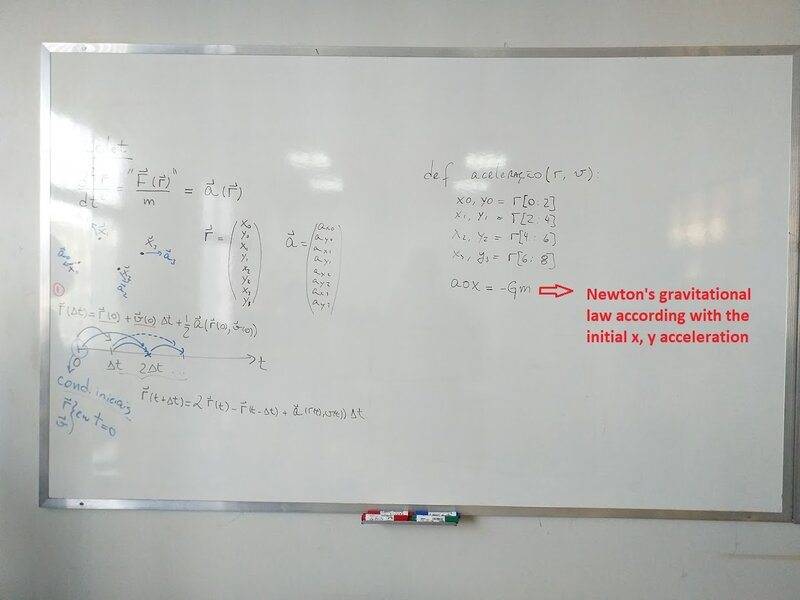 d²r⃗/dt² = "F⃗(r⃗)"/m = a⃗(r⃗)
x⃗₃ a⃗₃
r⃗ = (x₀ y₀ x₁ y₁ x₂ y₂ x₃ y₃)
a⃗ = (ax0 ay0 ax1 ay1 ax2 ay2 ax3 ay3)
①
r⃗(Δt) = r⃗(0) + v⃗(0) Δt + 1/2 a⃗(r⃗(0), v⃗(0))
0 Δt 2Δt ... t
cond. iniciais
r⃗
v⃗ } em t=0
r⃗(t+Δt) = 2 r⃗(t) - r⃗(t-Δt) + a⃗(r(t), v(t)) Δt
def aceleração(r, v):
x0, y0 = r[0:2]
x1, y1 = r[2:4]
x2, y2 = r[4:6]
x3, y3 = r[6:8]
a0x = -Gm
Newton's gravitational
law according with the
initial x, y acceleration